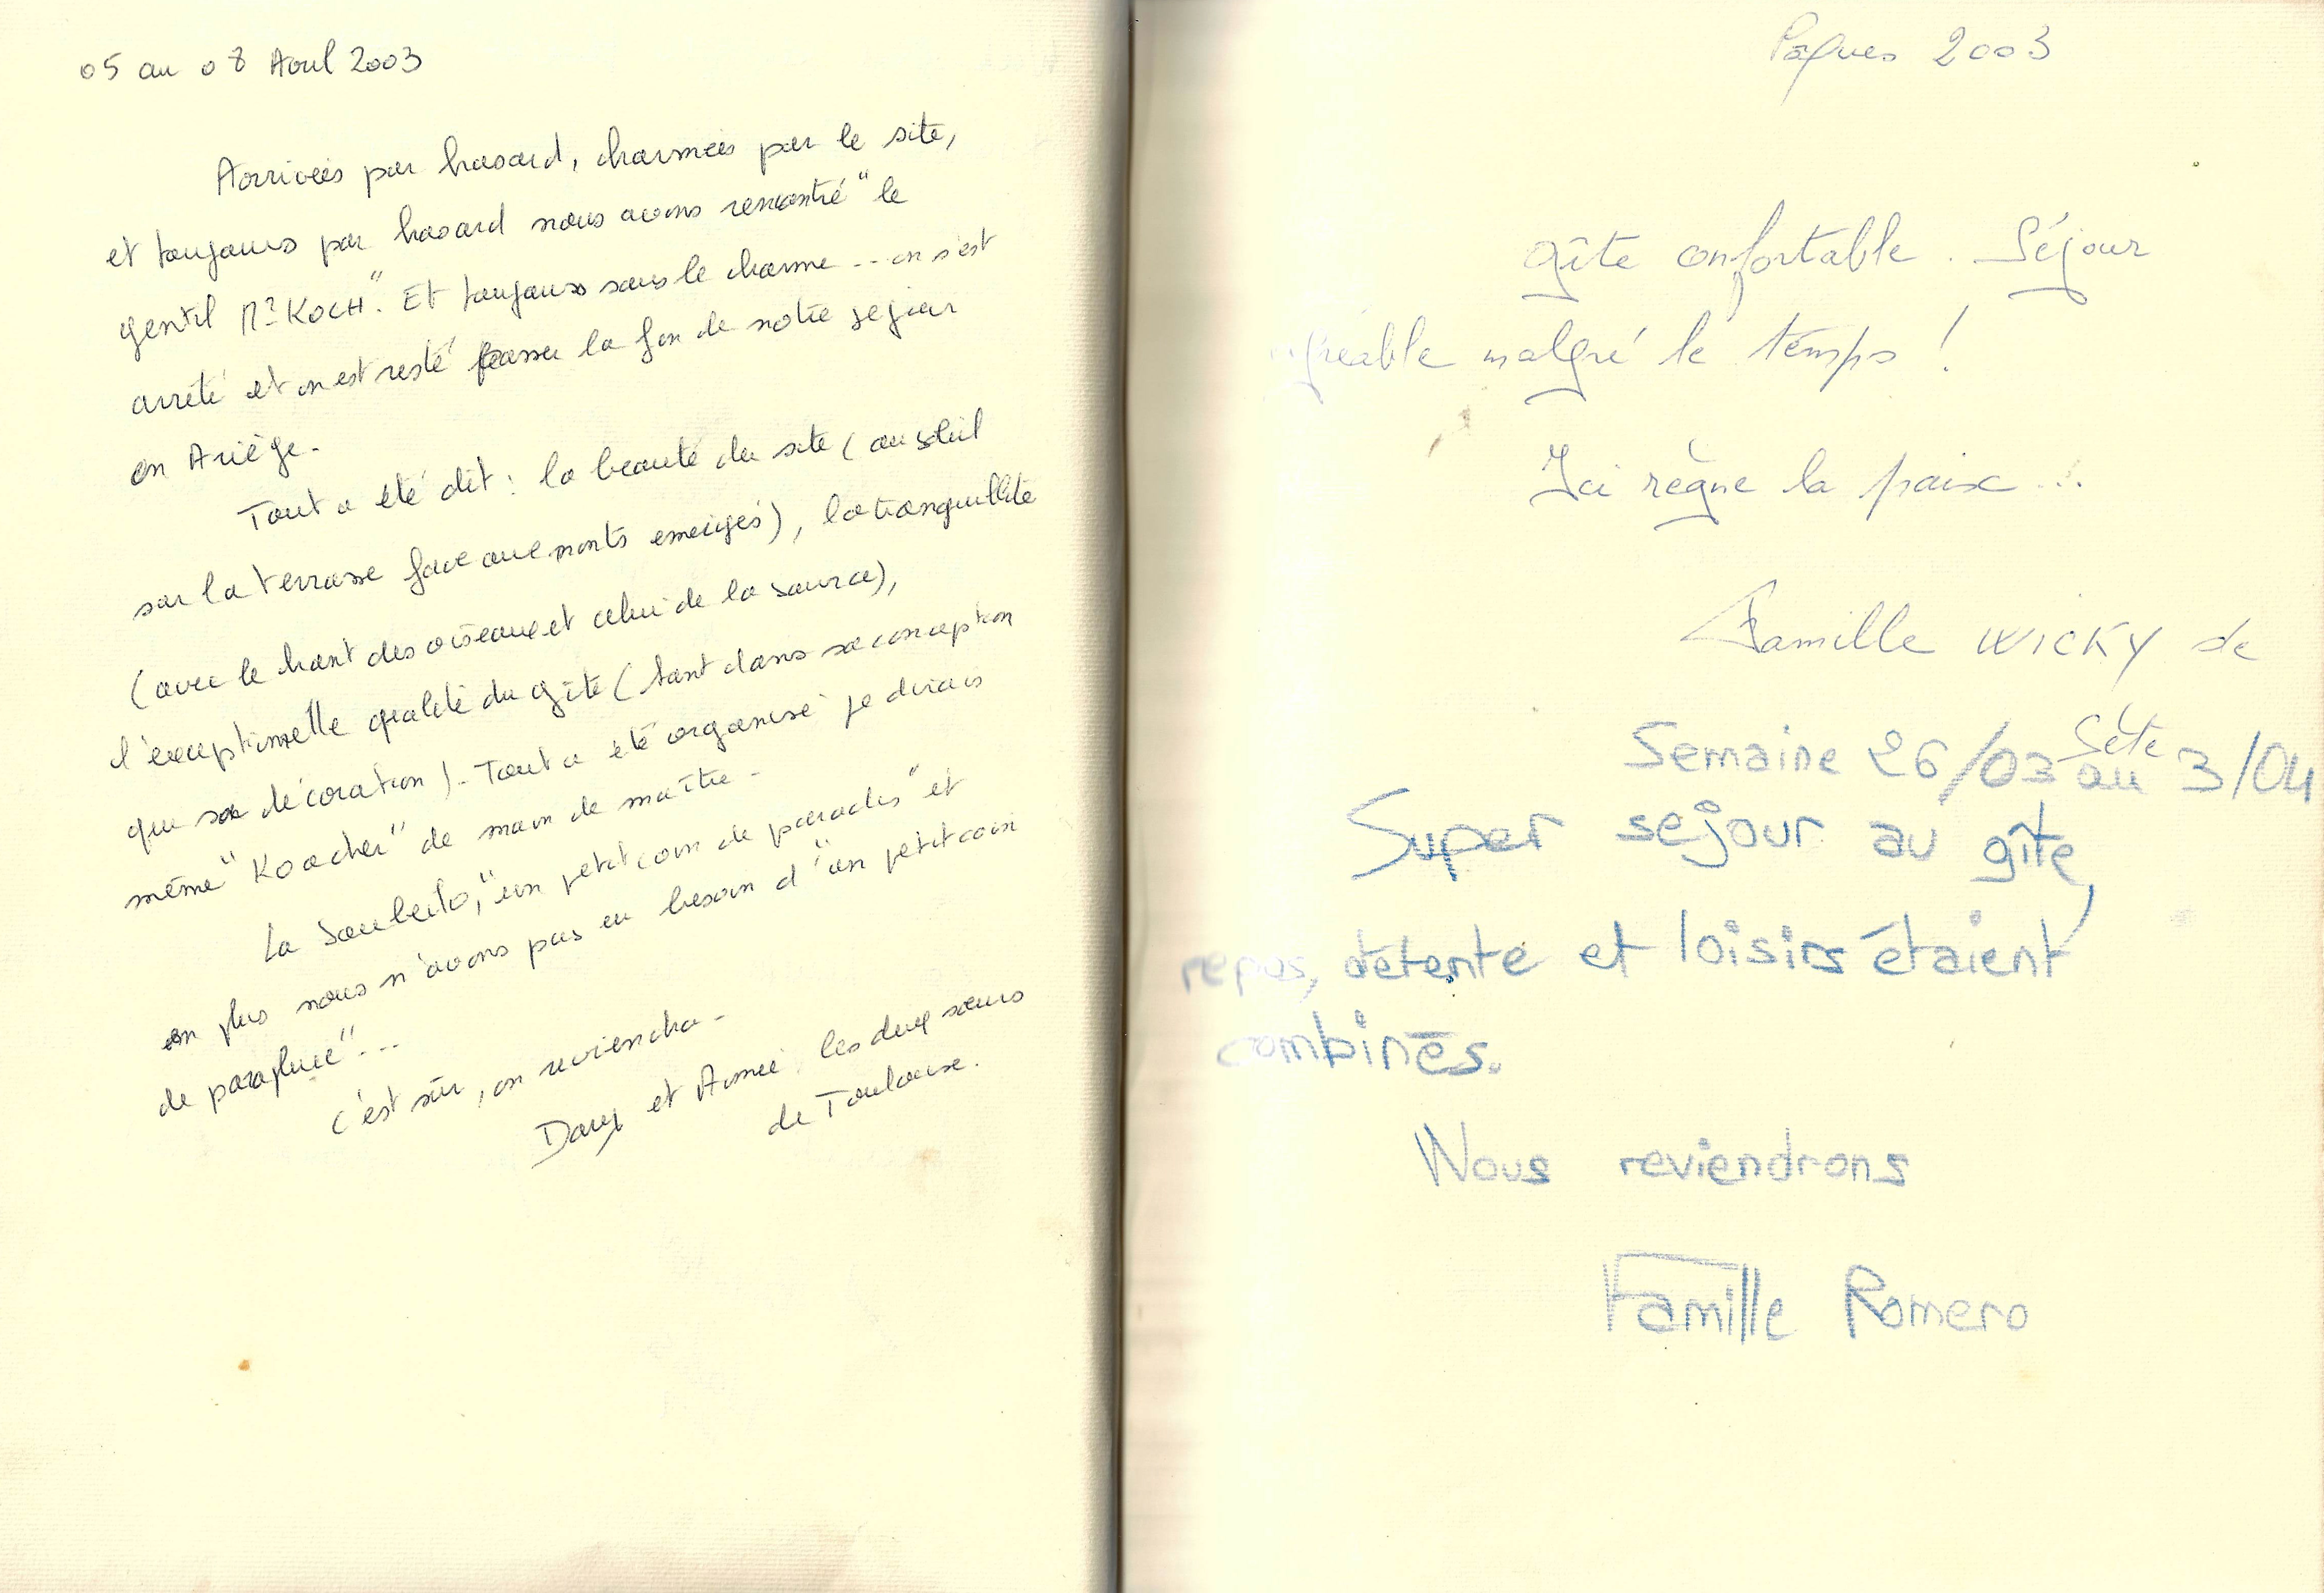 05 au 08 Avril 2003
Arrivées par hasard, charmées par le site,
et toujours par hasard nous avons rencontré "le
gentil Mr KOCH". Et toujours sous le charme... on s'est
arrêté et on est resté passer la fin de notre séjour
en Ariège.
Tout a été dit : la beauté du site (au soleil
sur la terrasse face aux monts ), la tranquillité
(avec le chant des oiseaux et celui de la source),
l'exceptionnelle qualité du gîte (tant dans sa conception
que sa décoration). Tout a été organisé je dirais
même "Koacher" de main de maître.
La , "un petit coin de paradis" et
en plus nous n'avons pas eu besoin d'"un petit coin
de parapluie"...
C'est sûr, on reviendra.
Dany et Aimée, les deux sœurs
de Toulouse.
Pâques 2003
gîte confortable. Séjour
agréable malgré le temps !
Ici règne la paix...
Famille WICKY de
Sète
Semaine 26/03 au 3/04
Super sejour au gîte,
repos, détente et loisirs étaient
combinés.
Nous reviendrons
Famille Romero